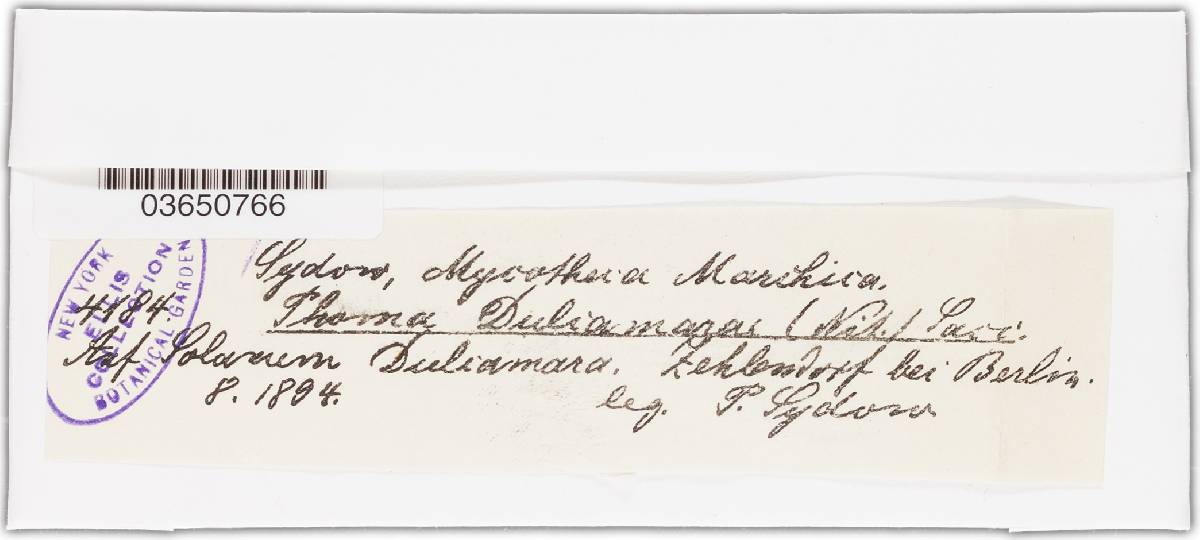 03650766
NEW YORK
ELLIS
COLLECTION
BOTANICAL GARDEN
Sydow, Mycotheca Marchica.
4184. Phoma Dulcamarae (Nit.) Sacc.
Auf Solanum Dulcamara. Zehlendorf bei Berlin.
8. 1894. leg. P. Sydow